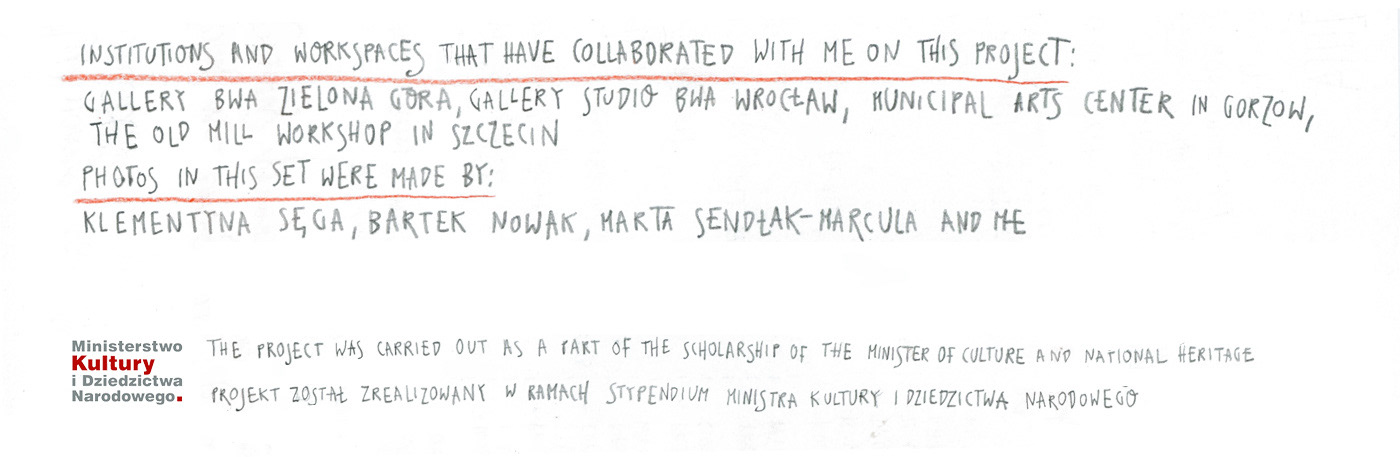 INSTITUTIONS AND WORKSPACES THAT HAVE COLLABORATED WITH ME ON THIS PROJECT:
GALLERY BWA ZIELONA GÓRA, GALLERY STUDIO BWA WROCŁAW, MUNICIPAL ARTS CENTER IN GORZOW,
THE OLD MILL WORKSHOP IN SZCZECIN
PHOTOS IN THIS SET WERE MADE BY:
KLEMENTYNA SĘGA, BARTEK NOWAK, MARTA SENDŁAK-MARCULA AND ME
Ministerstwo
Kultury
i Dziedzictwa
Narodowego.
THE PROJECT WAS CARRIED OUT AS A PART OF THE SCHOLARSHIP OF THE MINISTER OF CULTURE AND NATIONAL HERITAGE
PROJEKT ZOSTAŁ ZREALIZOWANY W RAMACH STYPENDIUM MINISTRA KULTURY I DZIEDZICTWA NARODOWEGO